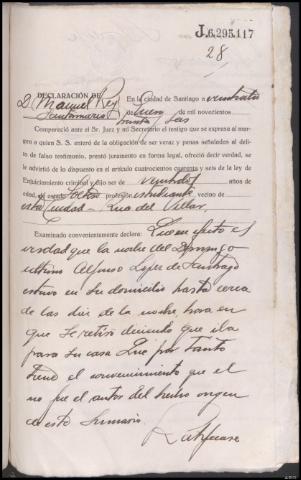 J.6.295.117
28
DECLARACIÓN DE
D. Manuel Rey
Santamaria
En la ciudad de Santiago a veintiuno
de Enero de mil novecientos
treinta y seis
Compareció ante el Sr. Juez y mi Secretario el testigo que se expresa al mar-
gen a quien S. S. enteró de la obligación de ser veraz y penas señaladas al deli-
to de falso testimonio, prestó juramento en forma legal, ofreció decir verdad, se
le advirtió de lo dispuesto en el artículo cuatrocientos cuarenta y seis de la ley de
Enjuiciamiento criminal y dijo ser de veintidos años de
edad, de estado soltero profesión estudiante vecino de
esta Ciudad - Rua del Villar.
Examinado convenientemente declara: Que en efecto es
verdad que la noche del Domingo
ultimo Alfonso Lopez de Santiago
estuvo en su domicilio hasta cerca
de las diez de la noche, hora en
que se retiró diciendo que iba
para su casa Que por tanto
tiene el convencimiento que el
no fue el autor del hecho origen
de este Sumario.
Ratificase